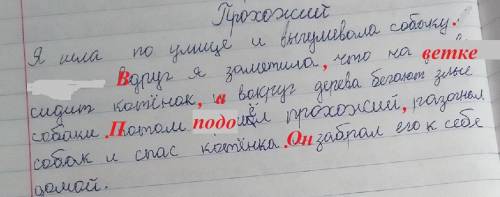 Прохожий
Я шла по улице и выгуливала собаку.
Вдруг я заметила, что на ветке
сидит котёнок, а вокруг дерева бегают злые
собаки. Потом подошёл прохожий, разогнал
собак и спас котёнка. Он забрал его к себе
домой.